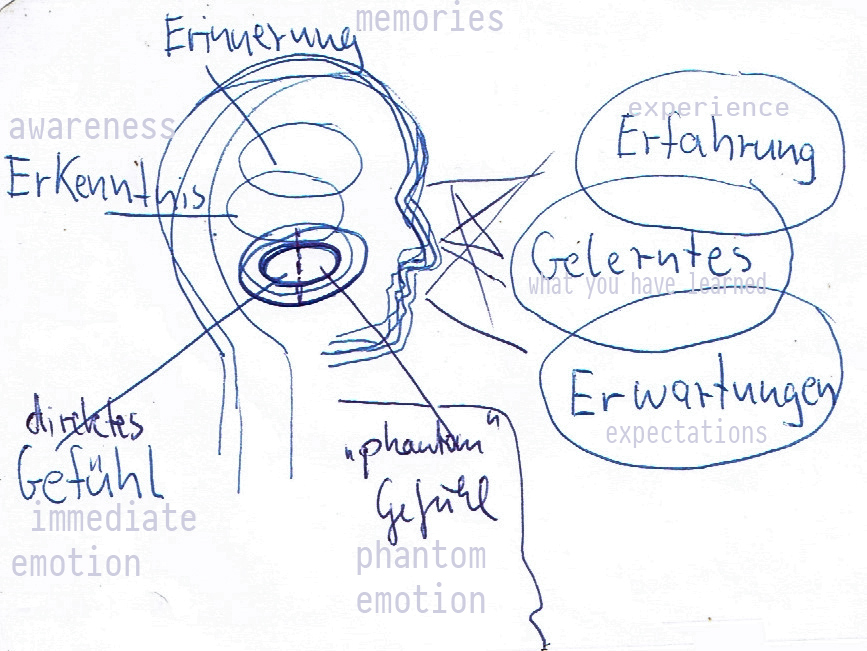 memories
Erinnerung
awareness
Erkenntnis
experience
Erfahrung
Gelerntes
what you have learned
Erwartungen
expectations
direktes
Gefühl
immediate
emotion
"phantom"
Gefühl
phantom
emotion